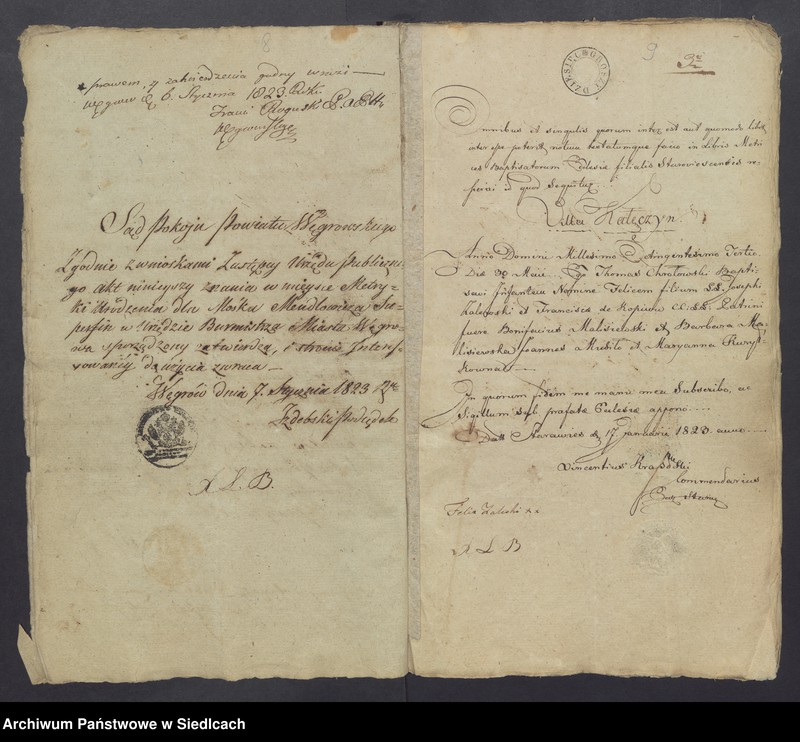 8
prawem, y zatwierdzenia godny
6. Stycznia 1823. Roku
Sąd Pokoju Powiatu Węgrowskiego
Zgodnie z wnioskami Zastępcy Urzędu Publiczne-
go akt ninieyszy znania w mieysce Metry-
ki Urodzenia dla Moska Mendlowicza
w Urzędzie Burmistrza Miasta Węgro-
wa sporządzony zatwierdza, i stronie Interes-
sowanéy do użycia zwraca —
Węgrów dnia 7. Stycznia 1823 R
Zdebski Podsędek
A L B.
9
GROSZY DZIESIĘĆ
Omnibus et singulis quorum interest aut quomodo libet
interesse poterit notum testatumque facio in Libris Metri
ces Baptisatorum Eclesie filialis Staroviescensis re-
periri id quod Sequitur
Villa Kałęczyn.
Anno Domini Millesimo Octingentesimo Tertio
Die 30 Maii Ego Thomas Chrołowski Bapti-
savi Infantem Nomine Felicem filium Josephi
Zalewski et Francisca de Patrini
fuere Bonifacius et Barbara
Joannes et Maryanna
In quorum fidem me manu mea Subscribo, ac
Sigillum prefate Eclesie appono
Datt 17 Januarii 1823. anno
Vincentius
Commendarius
Felix Zaleski x x
A L B
Archiwum Państwowe w Siedlcach